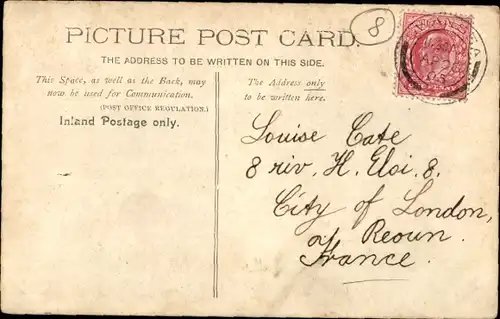 8
PICTURE POST CARD.
THE ADDRESS TO BE WRITTEN ON THIS SIDE.
This Space, as well as the Back, may
now be used for Communication.
(POST OFFICE REGULATION.)
Inland Postage only.
The Address only
to be written here.
Louise Cate
8 riv. H. Eloi. 8.
City of London,
Reoun.
France.